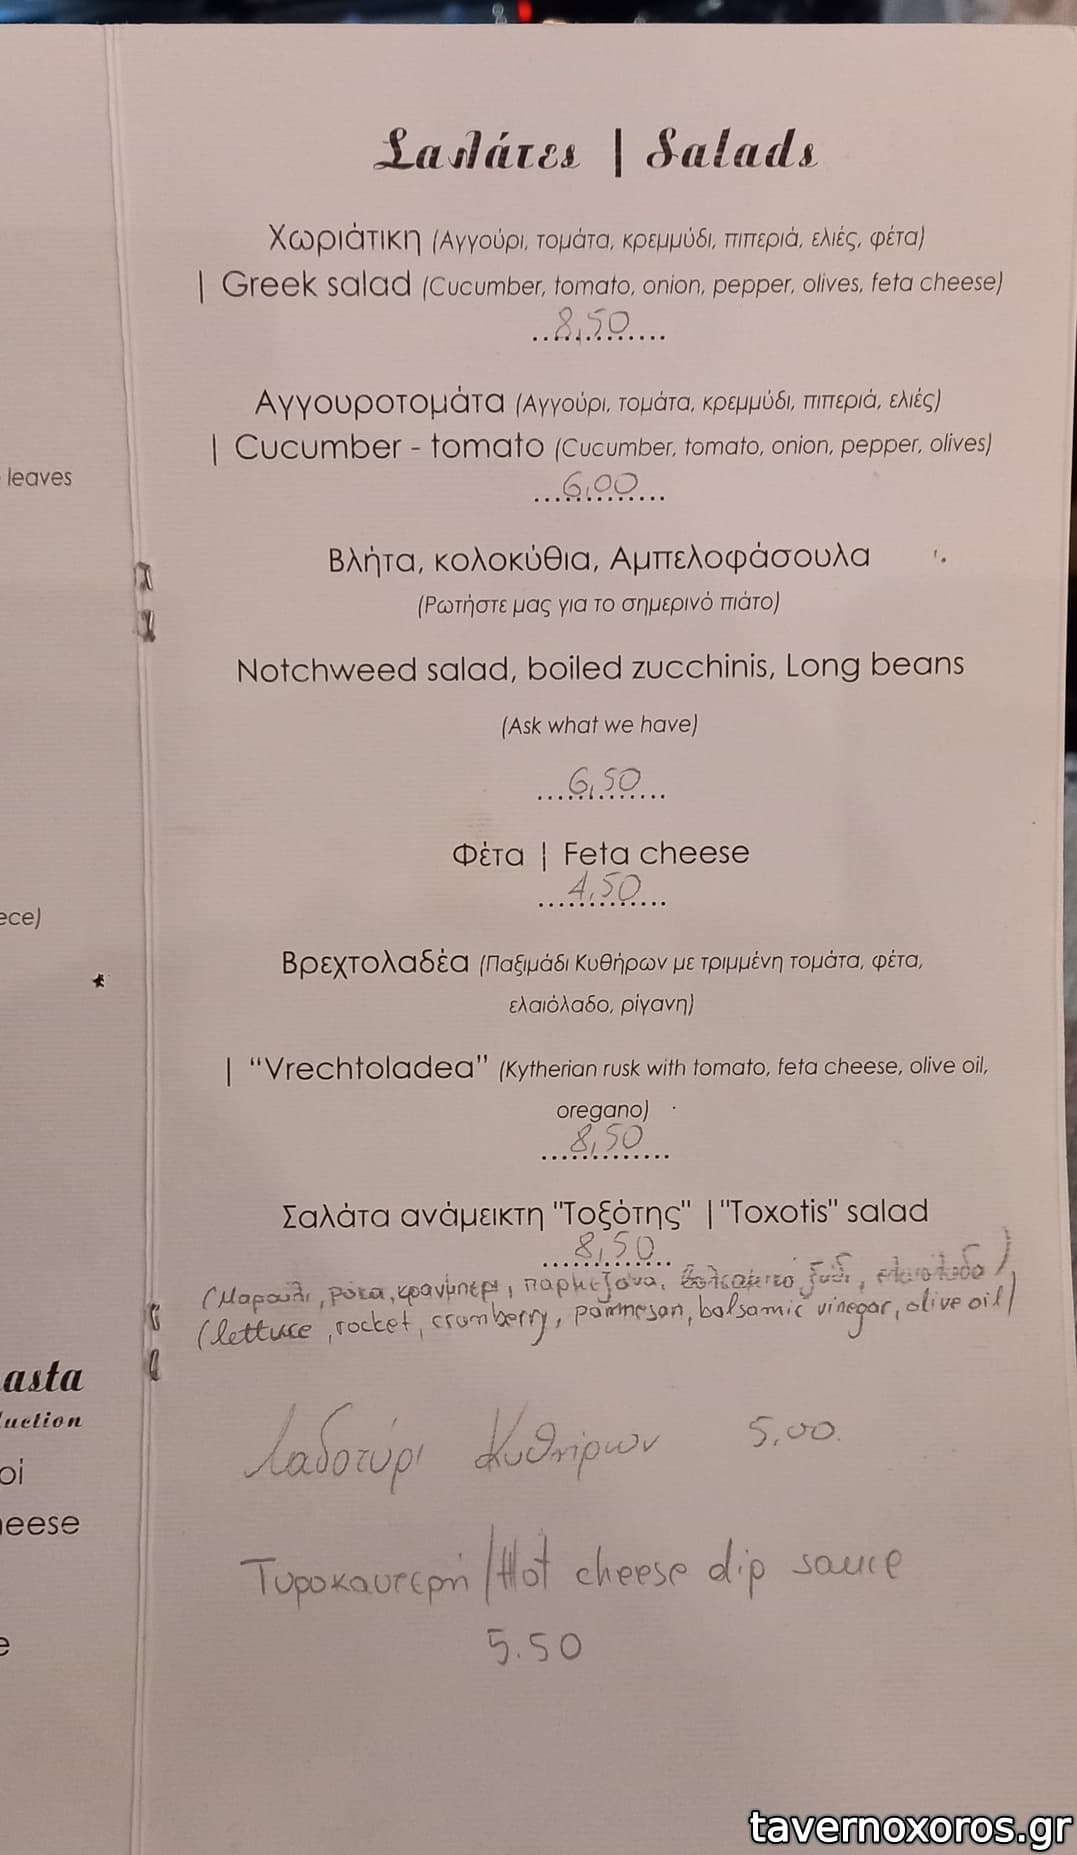 Σαλάτες | Salads
Χωριάτικη (Αγγούρι, τομάτα, κρεμμύδι, πιπεριά, ελιές, φέτα)
| Greek salad (Cucumber, tomato, onion, pepper, olives, feta cheese)
8,50
Αγγουροτομάτα (Αγγούρι, τομάτα, κρεμμύδι, πιπεριά, ελιές)
| Cucumber - tomato (Cucumber, tomato, onion, pepper, olives)
6,00
Βλήτα, κολοκύθια, Αμπελοφάσουλα
(Ρωτήστε μας για το σημερινό πιάτο)
Notchweed salad, boiled zucchinis, Long beans
(Ask what we have)
6,50
Φέτα | Feta cheese
4,50
Βρεχτολαδέα (Παξιμάδι Κυθήρων με τριμμένη τομάτα, φέτα,
ελαιόλαδο, ρίγανη)
| “Vrechtoladea” (Kytherian rusk with tomato, feta cheese, olive oil,
oregano)
8,50
Σαλάτα ανάμεικτη "Τοξότης" | "Toxotis" salad
8,50
(Μαρούλι, ρόκα, κρανμπερι, παρμεζάνα, βαλσαμικό ξύδι, ελαιόλαδο)
(lettuce, rocket, cramberry, parmesan, balsamic vinegar, olive oil)
Λαδοτύρι Κυθήρων 5,00
Τυροκαυτερή / Hot cheese dip sauce
5.50
leaves
ece)
*
asta
uction
οί
heese
e
tavernoxoros.gr